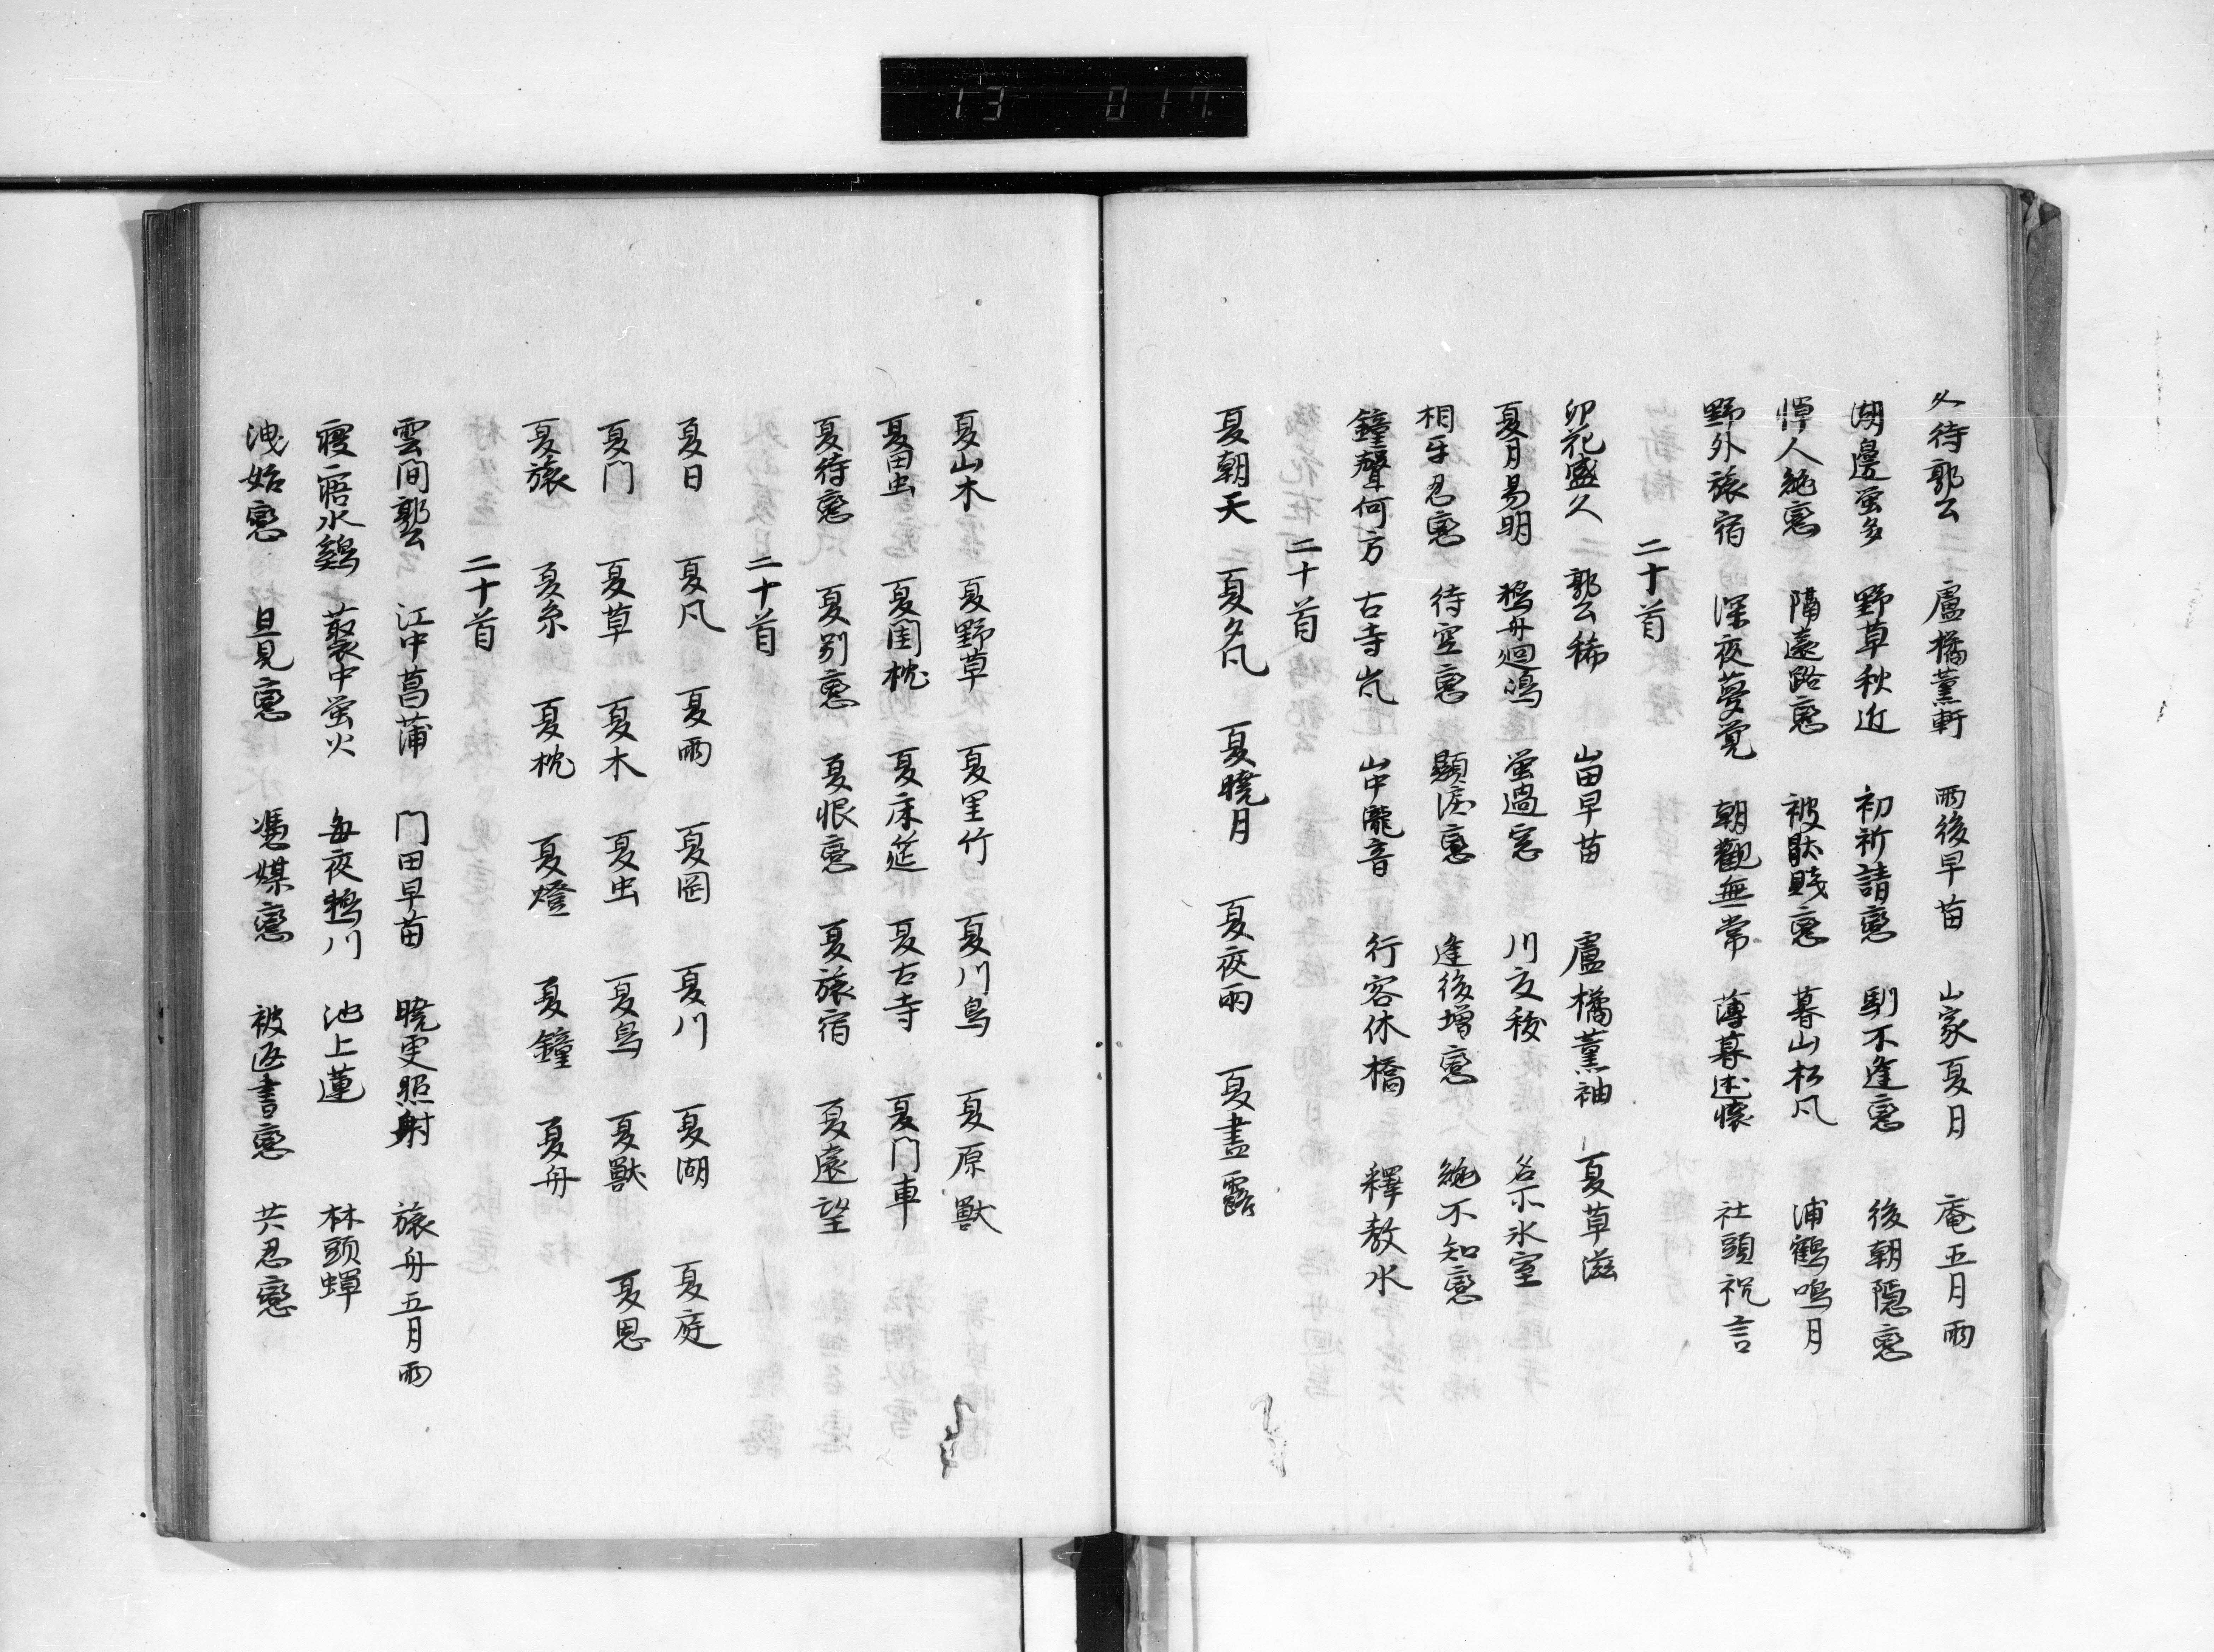 13 017
久待郭公 盧橘薫軒 雨後早苗 山家夏月 庵五月雨
湖邊蛍多 野草秋近 初祈請戀 馴不逢戀 後朝隠戀
憚人絶戀 隔遠路戀 被厭賤戀 暮山松風 浦鶴鳴月
野外旅宿 深夜夢覚 朝觀無常 薄暮述懐 社頭祝言
二十首
卯花盛久 郭公稀 山田早苗 盧橘薫袖 夏草滋
夏月易明 鵜舟廻嶋 蛍過窓 川夕稜 名所氷室
相互忍戀 待空戀 顕涙戀 逢後増戀 絶不知戀
鐘聲何方 古寺嵐 山中瀧音 行客休橋 釋教水
二十首
夏朝天 夏夕風 夏曉月 夏夜雨 夏晝露
夏山木 夏野草 夏里竹 夏川鳥 夏原獣
夏田虫 夏閨枕 夏床筵 夏古寺 夏門車
夏待戀 夏別戀 夏恨戀 夏旅宿 夏遠望
二十首
夏日 夏風 夏雨 夏岡 夏川 夏湖 夏庭
夏門 夏草 夏木 夏虫 夏鳥 夏獣 夏恩
夏旅 夏糸 夏枕 夏燈 夏鐘 夏舟
二十首
雲間郭公 江中菖蒲 門田早苗 曉更照射 旅舟五月雨
寝寤水鶏 叢中蛍火 毎夜鵜川 池上蓮 林頭蝉
洩始戀 且見戀 憑媒戀 被返書戀 共忍戀